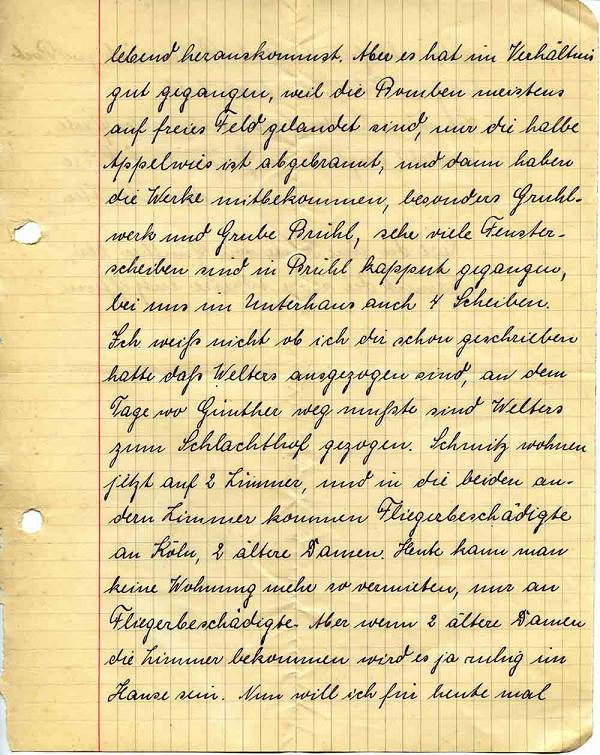 lebend herauskommst. Aber es hat im Verhältnis
gut gegangen, weil die Bomben meistens
auf freies Feld gelandet sind, nur die halbe
Appelwies ist abgebrannt, und dann haben
die Werke mitbekommen, besonders Gruhl-
werk und Grube Brühl, sehe viele Fenster-
scheiben sind in Brühl kapput gegangen,
bei uns im Unterhaus auch 4 Scheiben.
Ich weiß nicht ob ich dir schon geschrieben
hatte daß Welters ausgezogen sind, an dem
Tage wo Günther weg mußte sind Welters
zum Schlachthof gezogen. Schmitz wohnen
jetzt auf 2 Zimmer, und in die beiden an-
dern Zimmer kommen Fliegerbeschädigte
au Köln, 2 ältere Damen. Heute kann man
keine Wohnung mehr so vermieten, nur an
Fliegerbeschädigte. Aber wenn 2 ältere Damen
die Zimmer bekommen wird es ja ruhig im
Hause sein. Nun will ich für heute mal